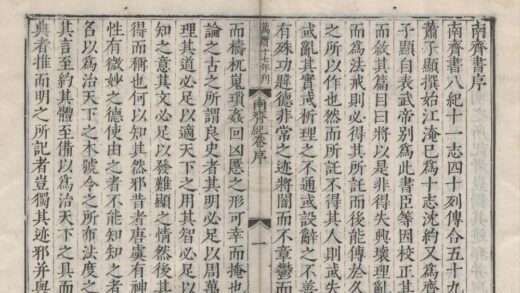 南齊書序
南齊書八紀十一志四十列傳合五十九
蕭子顯撰始江淹已爲十志沈約又爲齊
子顯自表武帝別爲此書臣等因校正其
而敘其篇目曰將以是非得失興壞理亂
而爲法戒則必得其所託而後能傳於久
之所以作也然而所託不得其人則或失
或亂其實或析理之不通或設辭之不善
有殊功韙德非常之迹將闇而不章鬱而
萬曆十七年刊
南齊紀卷序
一
而檮杌嵬瑣姦回凶慝之形可幸而掩也
論之古之所謂良史者其明必足以周萬
理其道必足以適天下之用其智必足以
知之意其文必足以發難顯之情然後其
得而稱也何以知其然邪昔者唐虞有神
性有微妙之德使由之者不能知知之者
名以爲治天下之本號令之所布法度之
其言至約其體至備以爲治天下之具而
典者推而明之所記者豈獨其迹邪并與